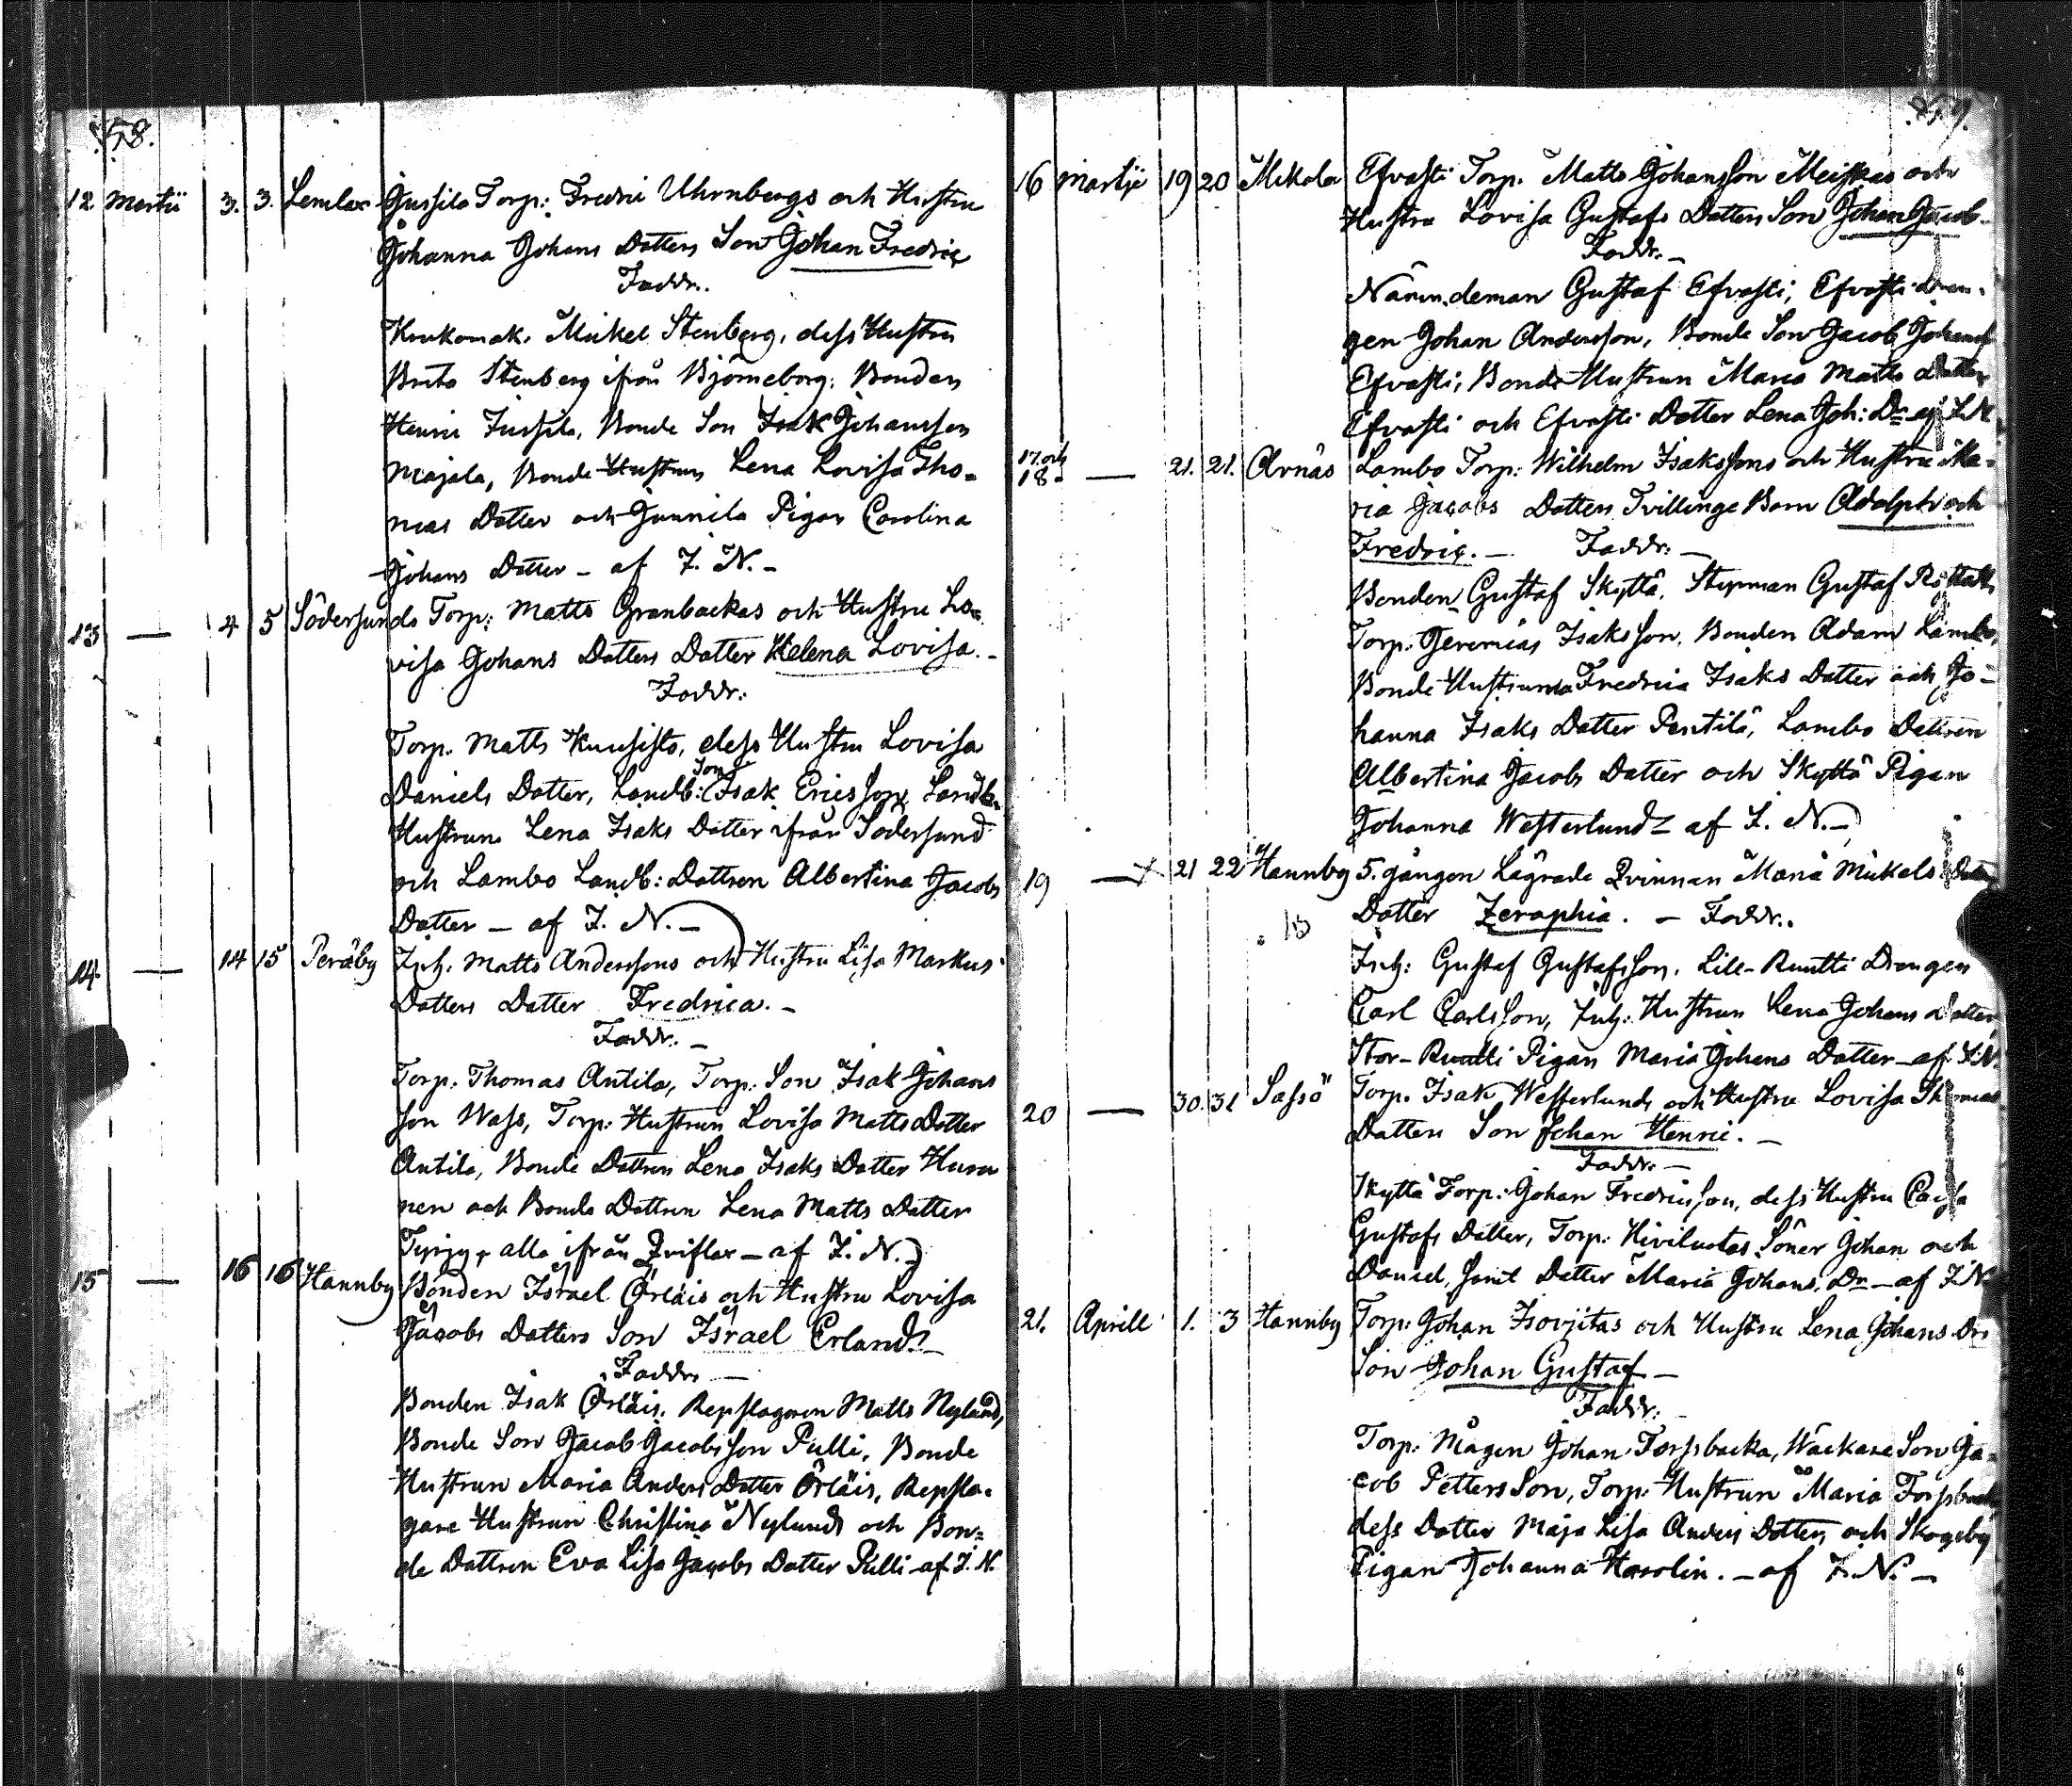 58.
12 Martii 3. 3. Lemlax Jussila Torp: Fredric Uhrnbergs och Hustru
Johanna Johans Dotters Son Johan Fredric
Faddr.
Krukomak. Mickel Stenberg, dess Hustru
Brita Stenberg ifrån Björneborg, Bonden
Henric Jussila, Bonde Son Isak Johansson
Majala, Bonde Hustrun Lena Lovisa Tho-
mas Dotter och Junnila Pigan Carolina
Johans Dotter – af I. N. –
13 — 4 5 Södersunds Torp: Matts Granbackas och Hustru Lo-
visa Johans Dotters Dotter Helena Lovisa. –
Faddr:
Torp. Matts Kuusisto, dess Hustru Lovisa
Daniels Dotter, Landb: Son Isak Ericsson, Landb.
Hustrun Lena Isaks Dotter ifrån Södersund
och Lambo Landb: Dottren Albertina Jacobs
Dotter – af I. N. –
14. — 14 15 Peräby Inh. Matts Anderssons och Hustru Lisa Markus
Dotters Dotter Fredrica. –
Faddr. –
Torp. Thomas Antila, Torp. Son Isak Johans
son Wass, Torp: Hustrun Lovisa Matts Dotter
Antila, Bonde Dottren Lena Isaks Dotter Hura
nen och Bonde Dottren Lena Matts Dotter
Tyrjy, alla ifrån Qviflax – af I. N.
15 — 16 16 Hannby Bonden Israel Örläis och Hustru Lovisa
Jacobs Dotters Son Israel Erland. –
Faddr. —
Bonden Isak Örläis, Repslagaren Matts Nylund,
Bonde Son Jacob Jacobsson Pulli, Bonde
Hustrun Maria Anders Dotter Örläis, Repsla-
gare Hustrun Christina Nylund och Bon-
de Dottren Eva Lisa Jacobs Dotter Pulli – af I. N.
59.
16 Martii 19 20 Mikola Efvasti Torp. Matts Johansson Meiskas och
Hustru Lovisa Gustafs Dotters Son Johan Jacob –
Faddr. –
Nämndeman Gustaf Efvasti, Efvasti Drän-
gen Johan Andersson, Bonde Son Jacob Johans
Efvasti, Bonde Hustrun Maria Matts Dotter
Efvasti och Efvasti Dotter Lena Joh: Dr af I. N.
17. och
18. — 21. 21. Arnäs Lambo Torp: Wilhelm Isakssons och Hustru Ma-
ria Jacobs Dotters Tvillinge Barn Adolph och
Fredric. – Faddr: –
Bonden Gustaf Skyttä, Styrman Gustaf
Torp. Jeremias Isaksson, Bonden Adam Lambo,
Bonde Hustrurna Fredrica Isaks Dotter och Jo-
hanna Isaks Dotter Pentilä, Lambo Dottren
Albertina Jacobs Dotter och Skyttä Pigan
Johanna Westerlund – af I. N. –
19 — x 21 22 Hannby 5. gången Lägrade Qvinnan Maria Mickels Dotters
Dotter Zeraphia. – Faddr.
Inh: Gustaf Gustafsson, Lill-Ruutti Drängen
Carl Carlsson, Inh: Hustrun Lena Johans Dotter,
Stor-Ruutti Pigan Maria Johans Dotter – af I. N.
20 — 30. 31 Sassö Torp. Isak Westerlunds och Hustru Lovisa Thomas
Dotters Son Johan Henric. –
Faddr: –
Skyttä Torp: Johan Fredricsson, dess Hustru Caisa
Gustafs Dotter, Torp: Kiviluotas Söner Johan och
Daniel, samt Dotter Maria Johans Dr – af I. N.
21. Aprill 1. 3 Hannby Torp: Johan Isovjitas och Hustru Lena Johans Drs
Son Johan Gustaf –
Faddr.
Torp. Mågen Johan Forssbacka, Wäckare Son Ja-
cob Petters Son, Torp. Hustrun Maria Forssbacka
dess Dotter Maja Lisa Anders Dotter, och Skogsby
Pigan Johanna Hasolin. – af I. N. –